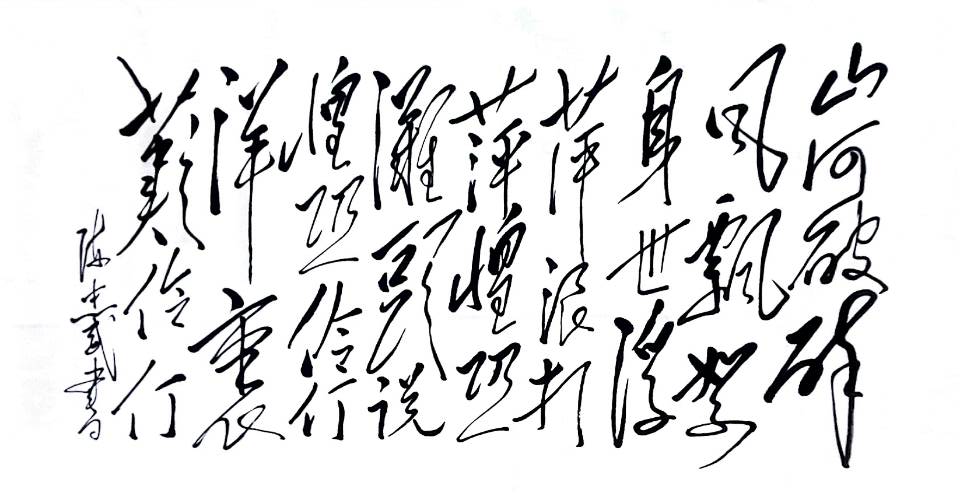 山河破碎
风飘絮
身世浮
萍浪打
萍惶恐
滩头说
惶恐伶仃
洋裏
歎伶仃
陈武書